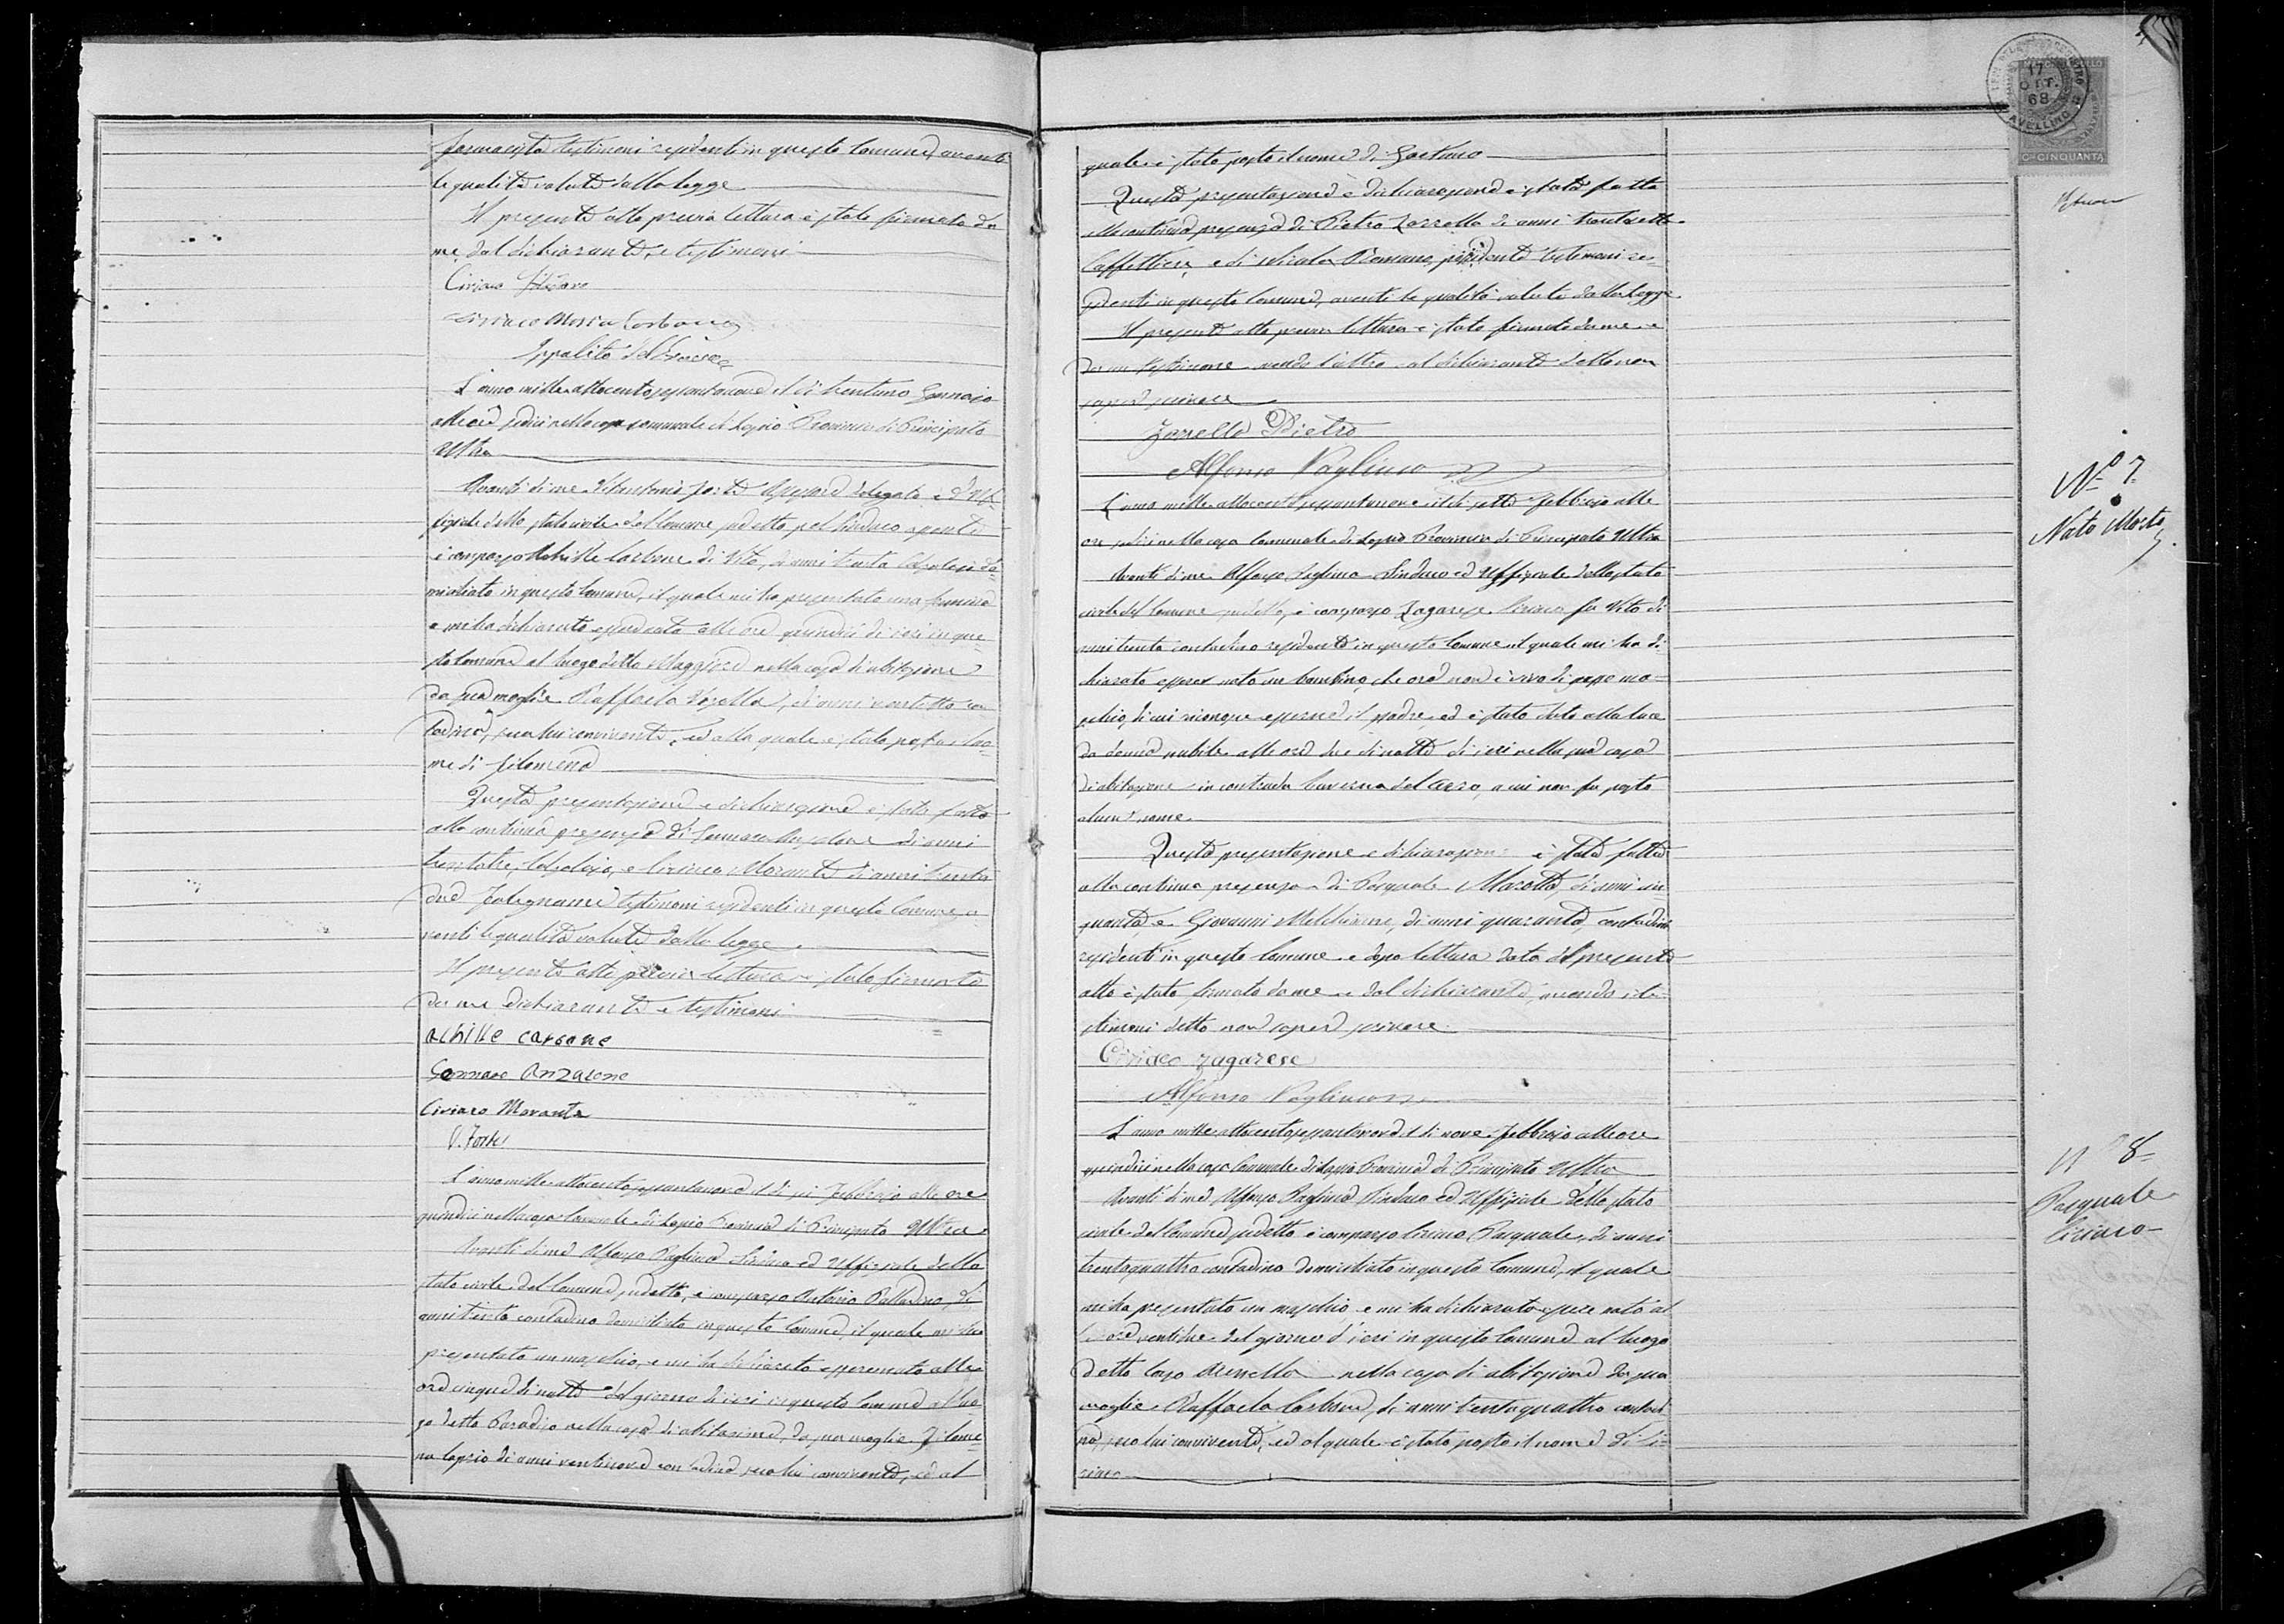 farmacista testimoni residenti in questo Comune, aventi
le qualità volute dalla legge
Il presente atto previa lettura è stato firmato da
me, dal dichiarante, e testimoni
Ciriaco
Ciriaco Maria Carbone
Ippolito
L'anno mille ottocento sessantanove il dì trentuno Gennaio
alle ore sedici nella casa comunale di Lapio Provincia di Principato
Ultra
Avanti di me Vitantonio Forte Assessore delegato ed Uf-
fiziale dello stato civile del Comune sudetto, pel Sindaco assente
è comparso Achille Carbone di Vito, di anni trenta Calzolajo do-
miciliato in questo Comune, il quale mi ha presentato una femmina
e mi ha dichiarato esser nata alle ore quindici di ieri in que-
sto Comune al luogo detto Maggiore nella casa d'abitazione
da sua moglie Raffaela, di anni ventotto con-
tadina, seco lui convivente, ed alla quale è stato posto il no-
me di Filomena
Questa presentazione e dichiarazione è stata fatta
alla continua presenza di Gennaro Anzalone di anni
trentatre, Calzolajo, e Ciriaco Morante di anni trenta
due Falegname testimoni residenti in questo Comune, a-
venti le qualità volute dalla legge.
Il presente atto previa lettura è stato firmato
da me dichiarante e testimoni
achille carbone
Gennaro Anzalone
Ciriaco Morante
V. Forte
L'anno mille ottocento sessantanove il dì sei Febbrajo alle ore
quindici nella casa Comunale di Lapio Provincia di Principato Ultra
Avanti di me Alfonso Pagliuca Sindaco ed Uffiziale dello
stato civile del Comune sudetto, è comparso Antonio Palladino, di
anni trenta contadino domiciliato in questo Comune, il quale mi ha
presentato un maschio, e mi ha dichiarato esser nato alle
ore cinque di notte del giorno di ieri in questo Comune al luo-
go detto Paradiso nella casa di abitazione, da sua moglie Filome-
na Caprio di anni ventinove contadina seco lui convivente, ed al
quale è stato posto il nome di Gaetano
Questa presentazione e dichiarazione è stata fatta
alla continua presenza di Pietro Zarrella di anni trentasette
Caffettiere e di Nicola Romano, possidente testimoni re-
sidenti in questo Comune, aventi le qualità volute dalla legge.
Il presente atto previa lettura è stato firmato da me e
da un testimone avendo l'altro ed il dichiarante detto non
sapere scrivere
Zarrella Pietro
Alfonso Pagliuca
Nº 7
Nato Morto
L'anno mille ottocento sessantanove il dì sette Febbrajo alle
ore sedici nella casa Comunale di Lapio Provincia di Principato Ultra
Avanti di me Alfonso Pagliuca Sindaco ed Uffiziale dello stato
civile del Comune sudetto, è comparso Zagarese Ciriaco fu Vito di
anni trenta contadino residente in questo Comune il quale mi ha di-
chiarato esser nato un bambino, che ora non è vivo di sesso ma-
schio, di cui rionque esserne il padre ed è stato dato alla luce
da donna nubile alle ore due di notte di ieri nella sua casa
di abitazione in contrada Taverna del, a cui non fu posto
alcun nome.
Questa presentazione e dichiarazione è stata fatta
alla continua presenza di Pasquale Marotta, di anni cin-
quanta, e Giovanni Melchionne, di anni quaranta, contadini
residenti in questo Comune e dopo lettura data del presente
atto è stato firmato da me e dal dichiarante, avendo i te-
stimoni detto non sapere scrivere
Ciriaco zagarese
Alfonso Pagliuca
Nº 8
Pasquale
Ciriaco
L'anno mille ottocento sessantanove il dì nove Febbrajo alle ore
quindici nella casa Comunale di Lapio Provincia di Principato Ultra
Avanti di me Alfonso Pagliuca Sindaco ed Uffiziale dello stato
civile del Comune sudetto è comparso Ciriaco Pasquale, di anni
trentaquattro contadino domiciliato in questo Comune, il quale
mi ha presentato un maschio, e mi ha dichiarato essere nato al-
le ore ventidue del giorno d'ieri in questo Comune al luogo
detto Capo nella casa di abitazione da sua
moglie Raffaela Carbone, di anni trentaquattro contadi-
na, seco lui convivente, ed al quale è stato posto il nome di Ci-
riaco
17
OTT.
68
AVELLINO
Cmi CINQUANTA